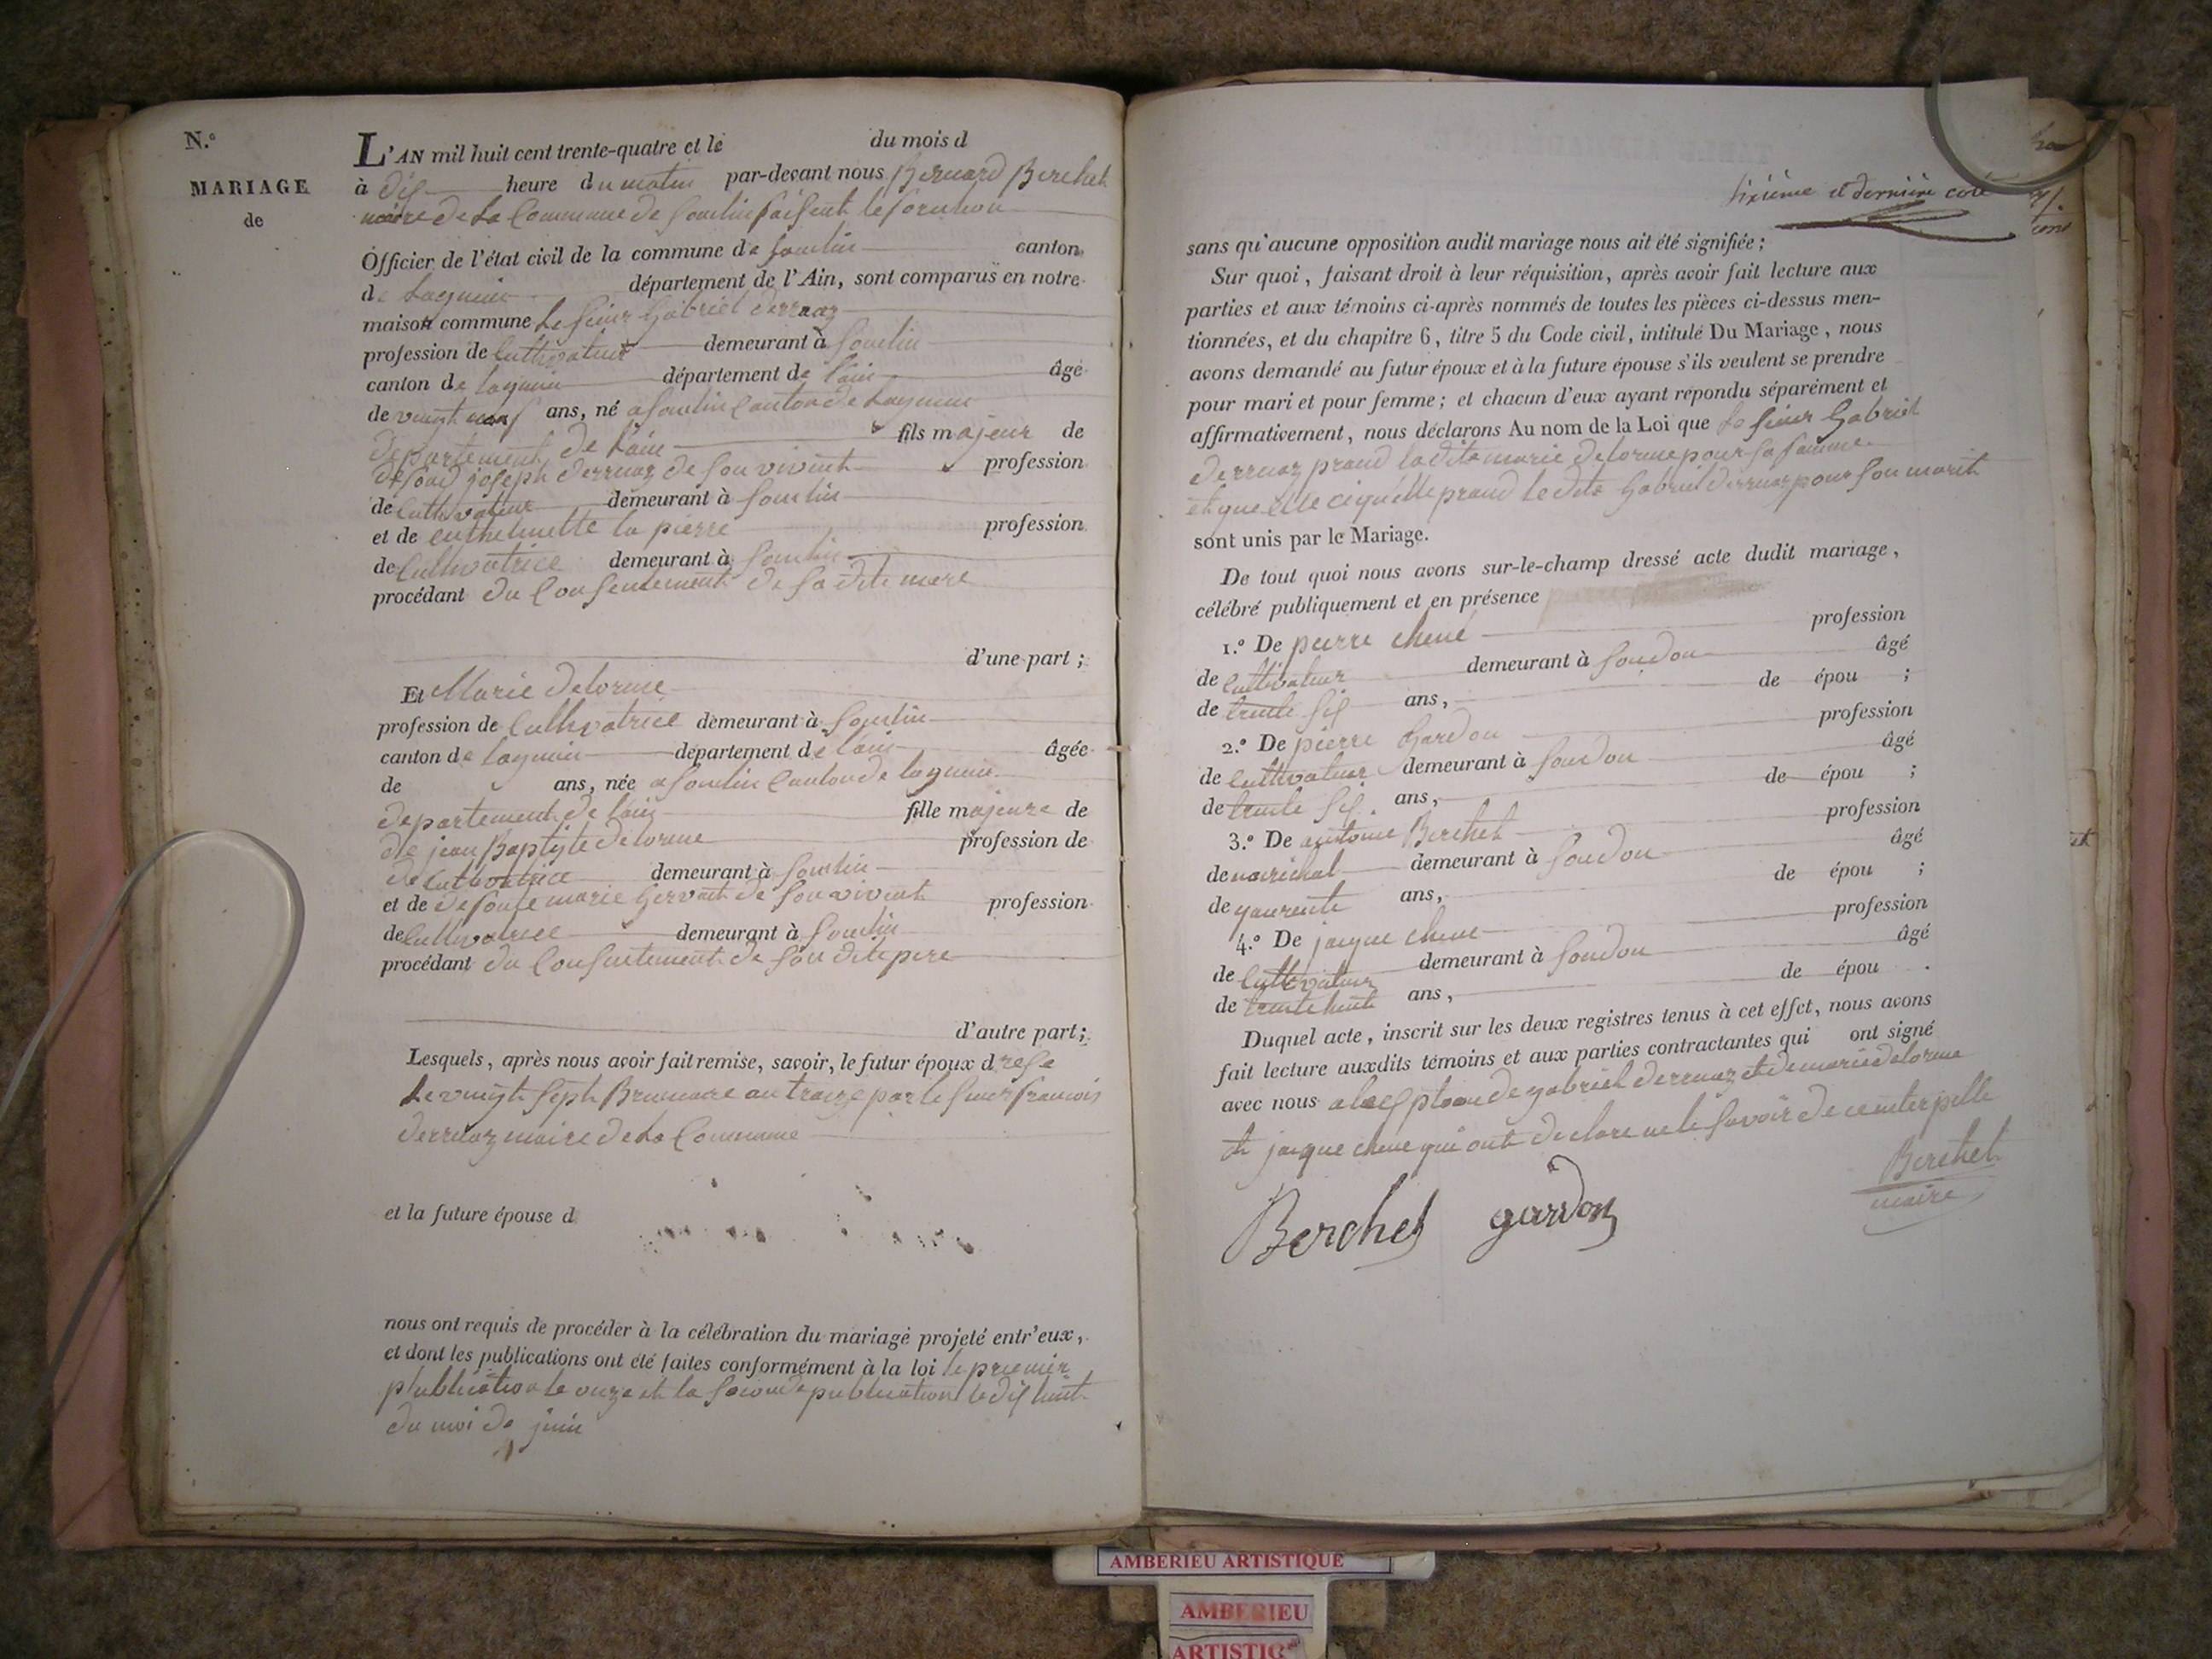 N.o
MARIAGE
de
L'AN mil huit cent trente-quatre et le du mois d
à dix heure du matin par-devant nous Bernard Berchet
maire de La Commune de Souclin faisent le
Officier de l'état civil de la commune de Souclin canton
de Lagnieu département de l'Ain, sont comparus en notre
maison commune Le sieur Gabriel derruaz
profession de Cultivateur demeurant à Souclin
canton de Lagnieu département de l'ain âgé
de vingt neuf ans, né a Souclin Canton de Lagnieu
departement de l'ain fils majeur de
joseph derruaz de son vivint profession
de Cultivateur demeurant à Souclin
et de la pierre profession
de Cultivatrice demeurant à Souclin
procédant du Consentement de sa dite mere
d'une part ;
Et Marie delorme
profession de Cultivatrice demeurant à Souclin
canton de Lagnieu département de l'ain âgée
de ans, née a Souclin Canton de Lagnieu
departement de l'ain fille majeure de
de jean Baptiste delorme profession de
demeurant à Souclin
et de marie de son vivint profession
de Cultivatrice demeurant à Souclin
procédant du Consentement de son dite pere
d'autre part ;
Lesquels, après nous avoir fait remise, savoir, le futur époux d
Le vingt sept Brumaire an traize par le sieur francois
derruaz maire de La Commune
et la future épouse d
nous ont requis de procéder à la célébration du mariage projeté entr'eux,
et dont les publications ont été faites conformément à la loi le priemier
publication le onze et la seconde publication le dix huit
du moi de juin
sixième et dernière coté
sans qu'aucune opposition audit mariage nous ait été signifiée ;
Sur quoi, faisant droit à leur réquisition, après avoir fait lecture aux
parties et aux témoins ci-après nommés de toutes les pièces ci-dessus men-
tionnées, et du chapitre 6, titre 5 du Code civil, intitulé Du Mariage, nous
avons demandé au futur époux et à la future épouse s'ils veulent se prendre
pour mari et pour femme ; et chacun d'eux ayant répondu séparément et
affirmativement, nous déclarons Au nom de la Loi que Le sieur Gabriel
derruaz prand la dite marie delorme pour sa famme
et que elle prand le dite Gabriel derruaz pour son marit
sont unis par le Mariage.
De tout quoi nous avons sur-le-champ dressé acte dudit mariage,
célébré publiquement et en présence
1.o De pierre chene profession
de Cultivateur demeurant à Soudon âgé
de trante six ans, de épou ;
2.o De pierre Gardon profession
de Cultivateur demeurant à Soudon âgé
de trante six ans, de épou ;
3.o De antoine Berchet profession
de marichal demeurant à Soudon âgé
de ans, de épou ;
4.o De jacque chene profession
de Cultivateur demeurant à Soudon âgé
de trante huit ans, de épou .
Duquel acte, inscrit sur les deux registres tenus à cet effet, nous avons
fait lecture auxdits témoins et aux parties contractantes qui ont signé
avec nous de gabriel derruaz et de marie delorme
et jacque chene qui ont declare ne le savoir de ce
Berchet
maire
Berchet gardon
AMBERIEU ARTISTIQUE
AMBERIEU
ARTISTIQ